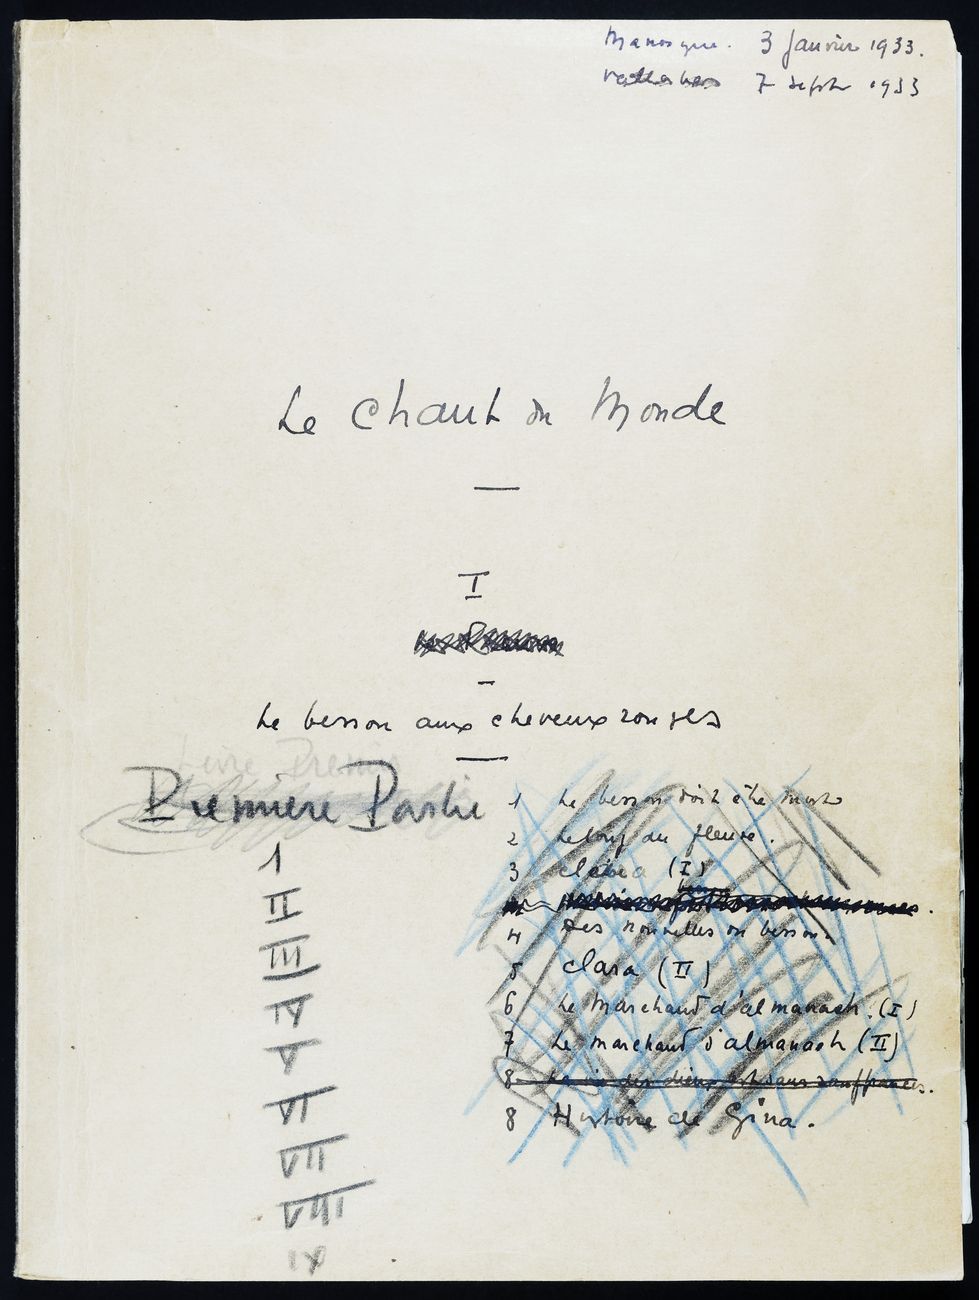 Manosque. 3 Janvier 1933.
7 sept 1933
Le Chant du Monde
I
Le besson aux cheveux rouges
Livre Premier
Première Partie
1 Le besson doit être mort
2 Le long du fleuve.
3 Clara (I)
4 Des nouvelles du besson.
5 Clara (II)
6 Le Marchand d'almanach. (I)
7 Le marchand d'almanach (II)
8 La vie des dieux est sans souffrances.
8 Histoire de Gina.
I
II
III
IV
V
VI
VII
VIII
IX